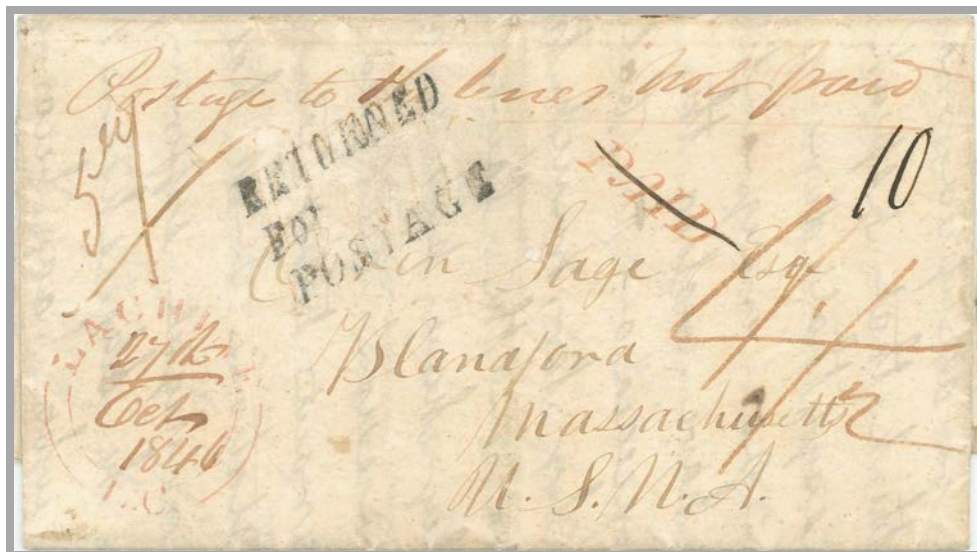 Postage to the lines not paid
RETURNED
For
POSTAGE
PAID
10
Sage Esqr
Blanaford
Massachusetts
U.S.N.A.
LACHINE
27th
Oct
1846
L.C